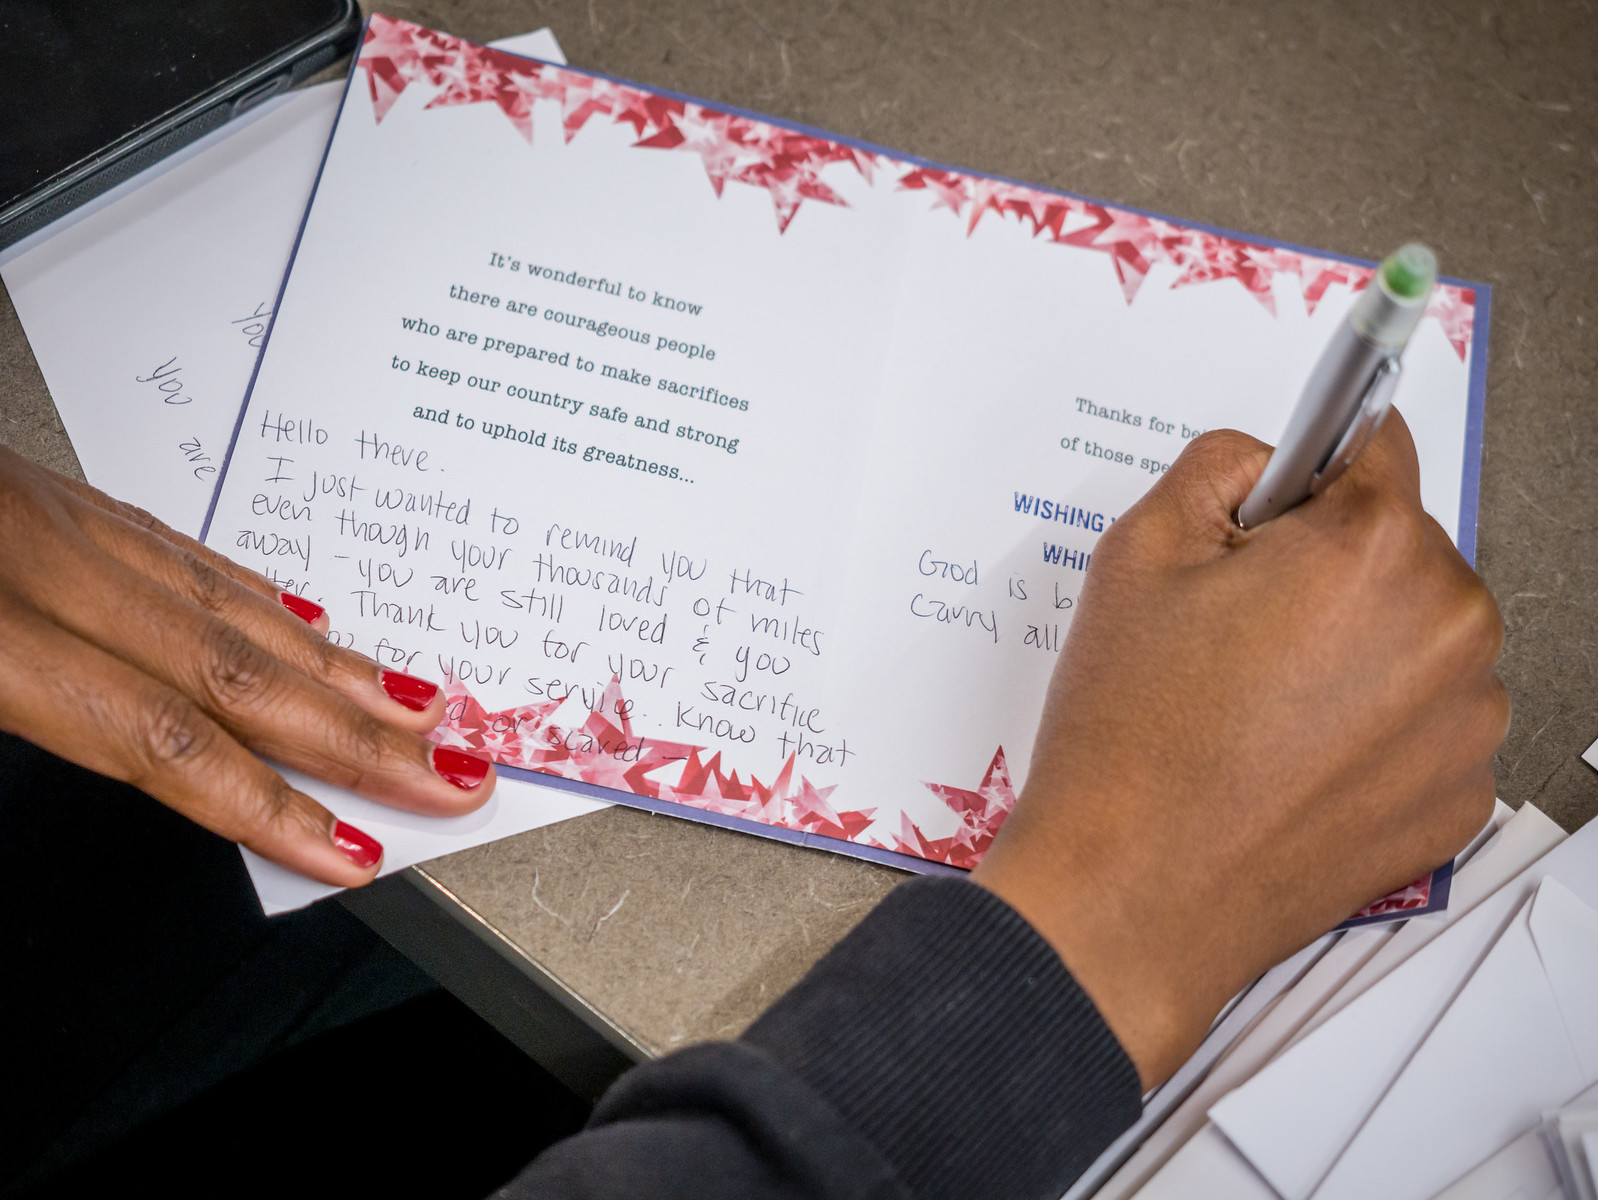 It's wonderful to know
there are courageous people
who are prepared to make sacrifices
to keep our country safe and strong
and to uphold its greatness...
Hello there.
I just wanted to remind you that
even though your thousands of miles
away - you are still loved & you
tter. Thank you for your sacrifice
for your service.. Know that
ed or scared -
Thanks for be
of those spe
WISHING
WHI
God is b
carry all
you
you
are